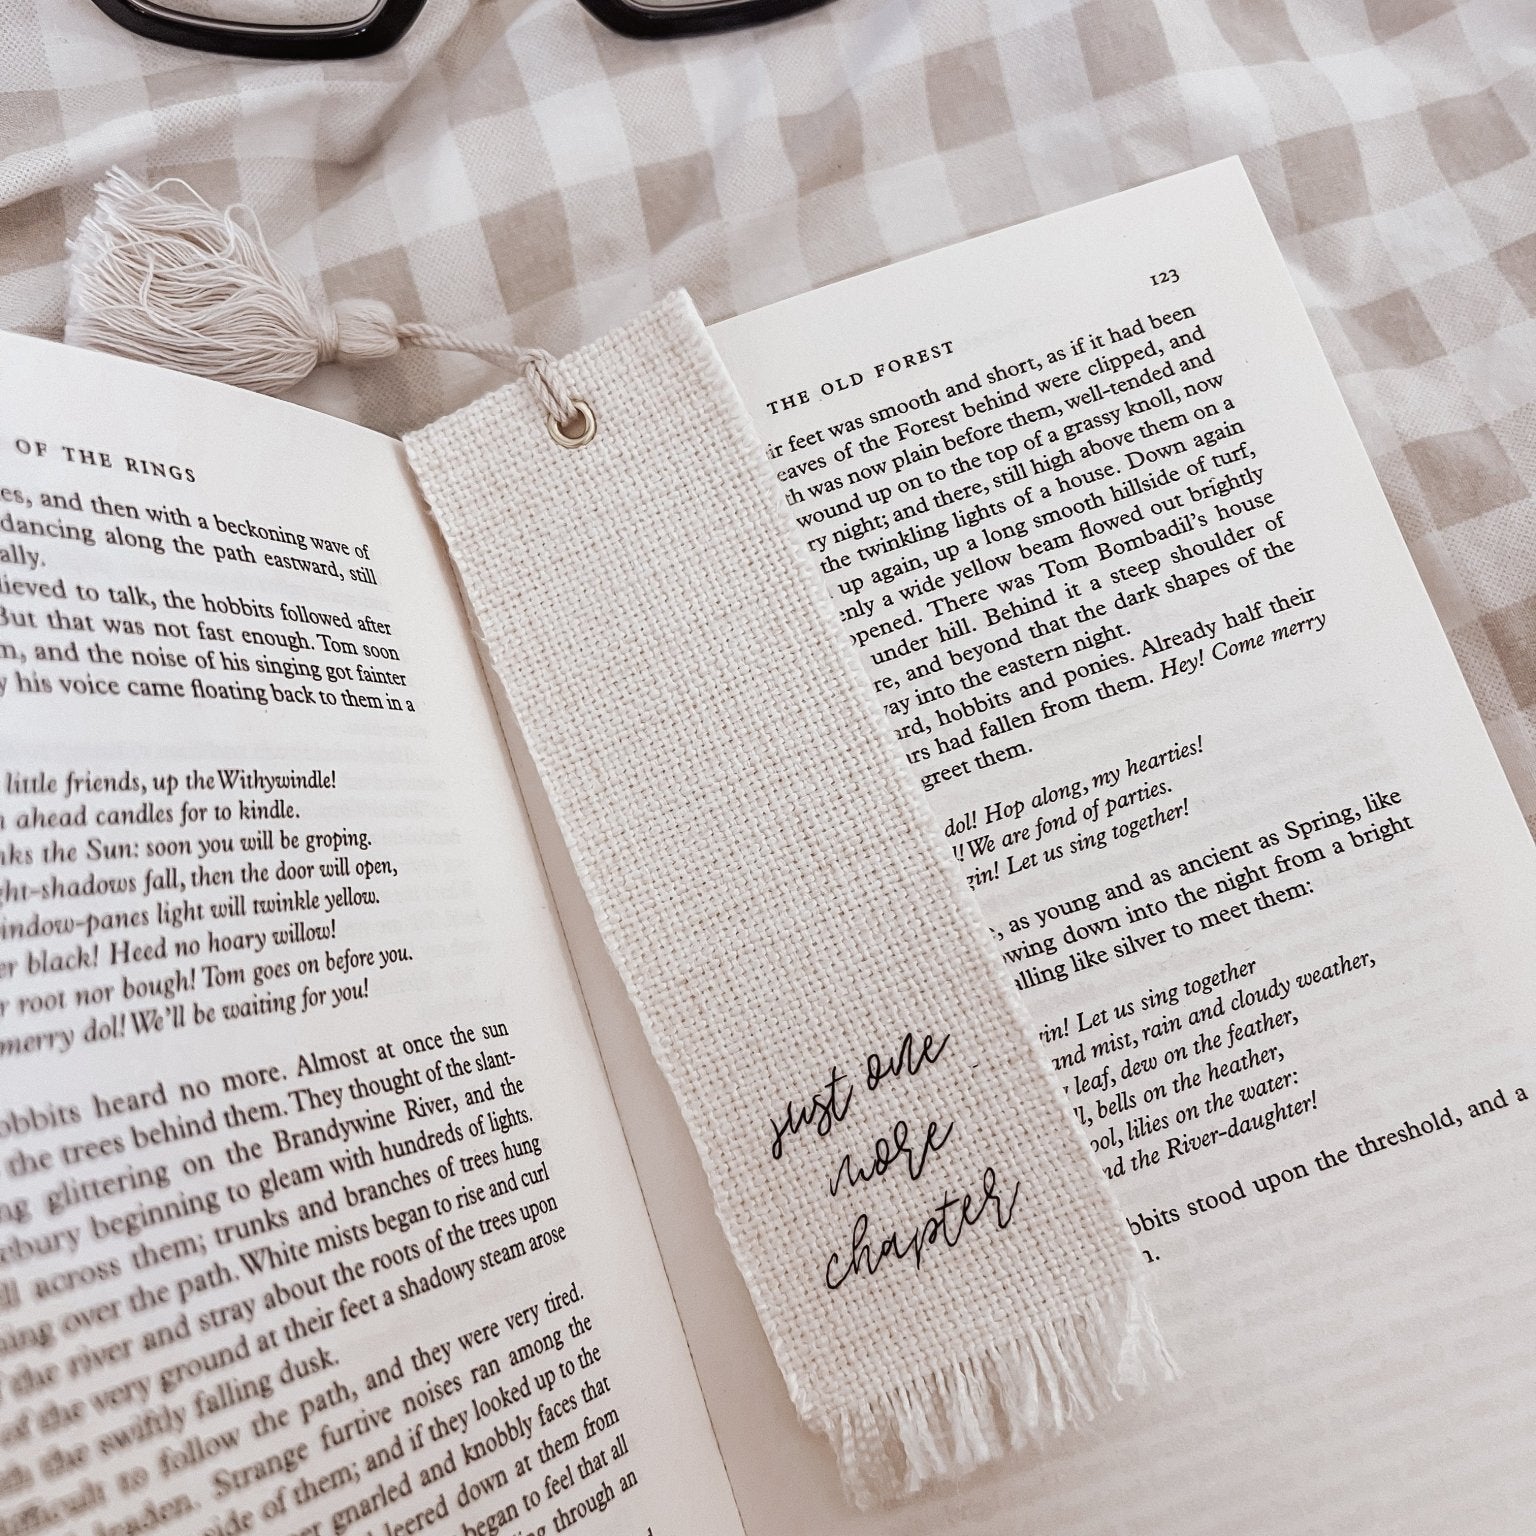 OF THE RINGS
es, and then with a beckoning wave of
dancing along the path eastward, still
ally.
lieved to talk, the hobbits followed after
But that was not fast enough. Tom soon
m, and the noise of his singing got fainter
y his voice came floating back to them in a
little friends, up the Withywindle!
ahead candles for to kindle.
nks the Sun: soon you will be groping.
ght-shadows fall, then the door will open,
indow-panes light will twinkle yellow.
er black! Heed no hoary willow!
r root nor bough! Tom goes on before you.
merry dol! We'll be waiting for you!
obbits heard no more. Almost at once the sun
the trees behind them. They thought of the slant-
ng glittering on the Brandywine River, and the
ebury beginning to gleam with hundreds of lights.
ll across them; trunks and branches of trees hung
ning over the path. White mists began to rise and curl
the river and stray about the roots of the trees upon
of the very ground at their feet a shadowy steam arose
the swiftly falling dusk.
to follow the path, and they were very tired.
leaden. Strange furtive noises ran among the
side of them; and if they looked up to the
gnarled and knobbly faces that
leered down at them from
began to feel that all
through an
THE OLD FOREST 123
ir feet was smooth and short, as if it had been
eaves of the Forest behind were clipped, and
th was now plain before them, well-tended and
wound up on to the top of a grassy knoll, now
ry night; and there, still high above them on a
the twinkling lights of a house. Down again
up again, up a long smooth hillside of turf,
enly a wide yellow beam flowed out brightly
opened. There was Tom Bombadil's house
under hill. Behind it a steep shoulder of
re, and beyond that the dark shapes of the
way into the eastern night.
ard, hobbits and ponies. Already half their
ars had fallen from them. Hey! Come merry
greet them.
dol! Hop along, my hearties!
l! We are fond of parties.
gin! Let us sing together!
, as young and as ancient as Spring, like
owing down into the night from a bright
alling like silver to meet them:
gin! Let us sing together
and mist, rain and cloudy weather,
leaf, dew on the feather,
ll, bells on the heather,
ool, lilies on the water:
nd the River-daughter!
bbits stood upon the threshold, and a
n.
just one
more
chapter